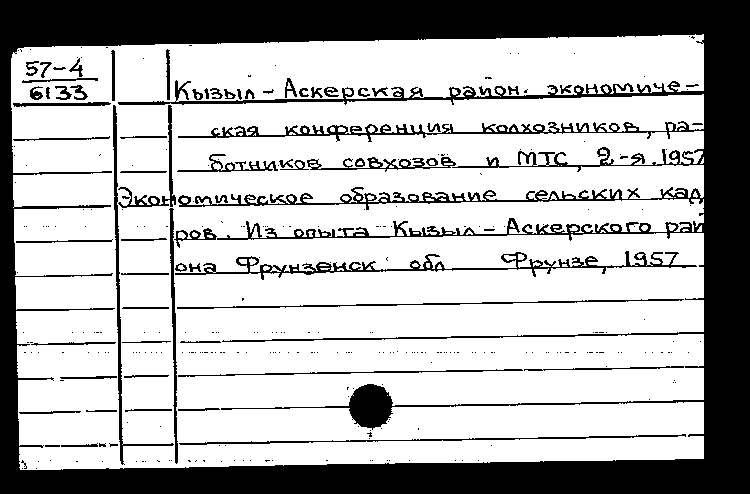 57-4
6133
Кызыл-Аскерская район. экономиче-
ская конференция колхозников, ра-
ботников совхозов и МТС, 2-я. 1957
Экономическое образование сельских кад
ров. Из опыта Кызыл-Аскерского рай
она Фрунзенск обл Фрунзе, 1957